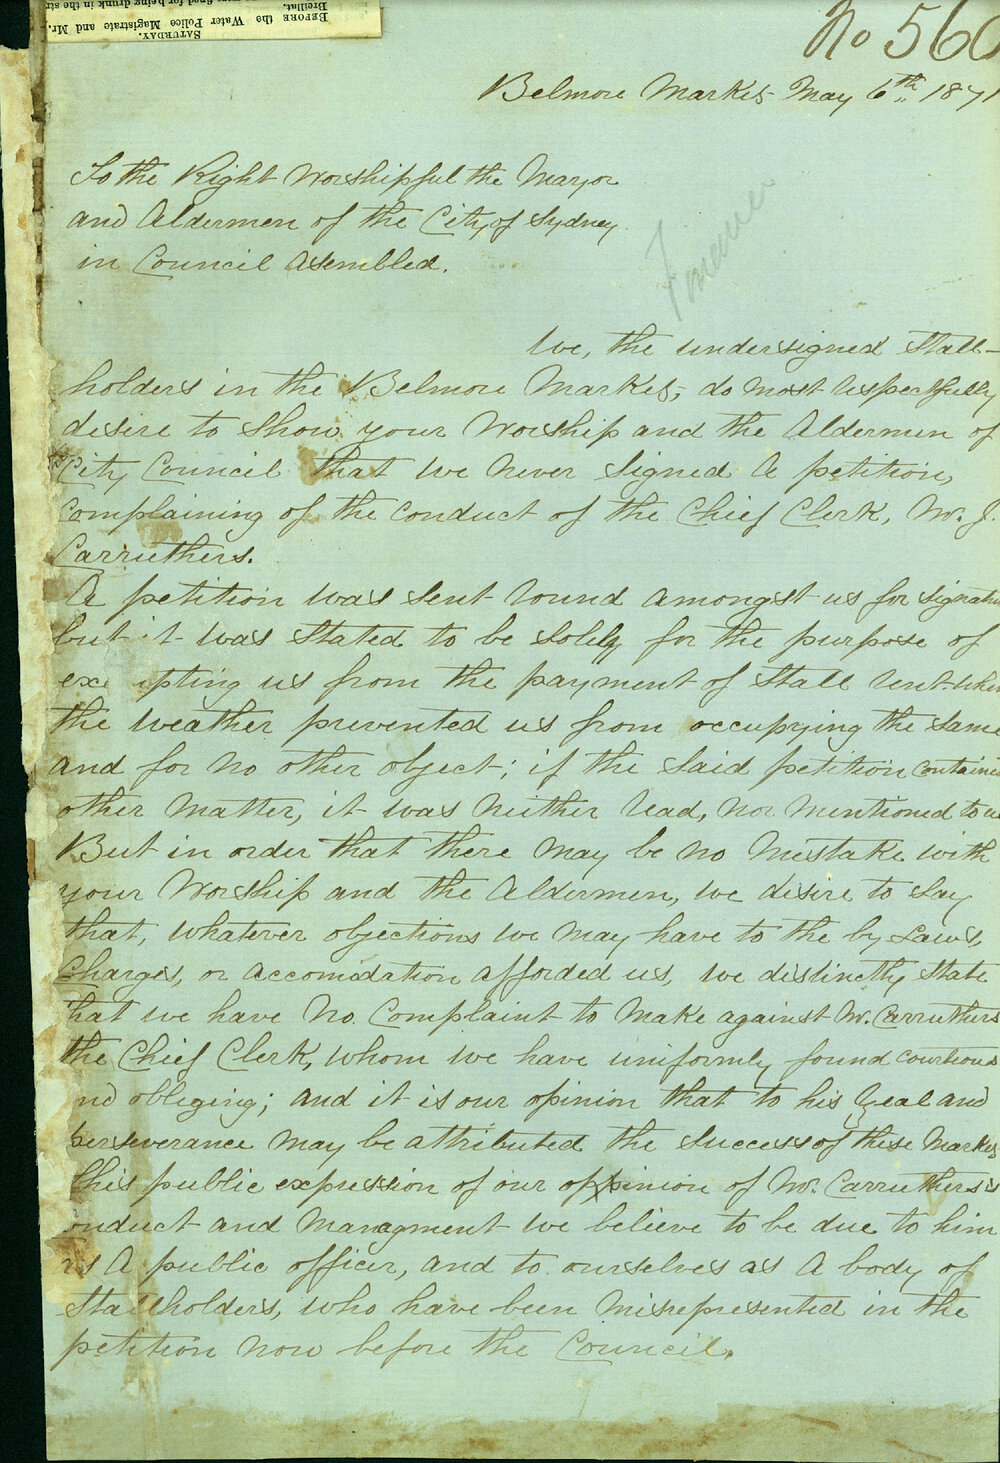 SATURDAY.
BEFORE the Water Police Magistrate and Mr.
Breillat.
No 560
Belmore Market May 6th 1871
To the Right Worshipful the Mayor
and Aldermen of the City of Sydney
in Council Asembled.
Finance
We, the undersigned Stall-
holders in the Belmore Market, do most respectfully
desire to show your Worship and the Aldermen of
City Council that we never signed a petition,
complaining of the conduct of the Chief Clerk, Mr. J.
Carruthers.
A petition was sent round amongst us for signatu
but it was stated to be solely for the purpose of
exe pting us from the payment of Stall rent when
the weather prevented us from occupying the same
and for no other object; if the said petition contained
other matter, it was neither read, nor mentioned to us
But in order that there may be no mistake with
your Worship and the Aldermen, we desire to say
that, whatever objections we may have to the by Laws,
Charges, or accomodation afforded us, we distinctly state
that we have no complaint to make against Mr. Carruthers
the Chief Clerk, whom we have uniformly found courteous
nd obliging; and it is our opinion that to his zeal and
perseverance may be attributed the success of these Markets
This public expression of our opinion of Mr. Carruthers's
onduct and managment we believe to be due to him
as a public officer, and to ourselves as a body of
Stallholders, who have been misrepresented in the
petition now before the Council.